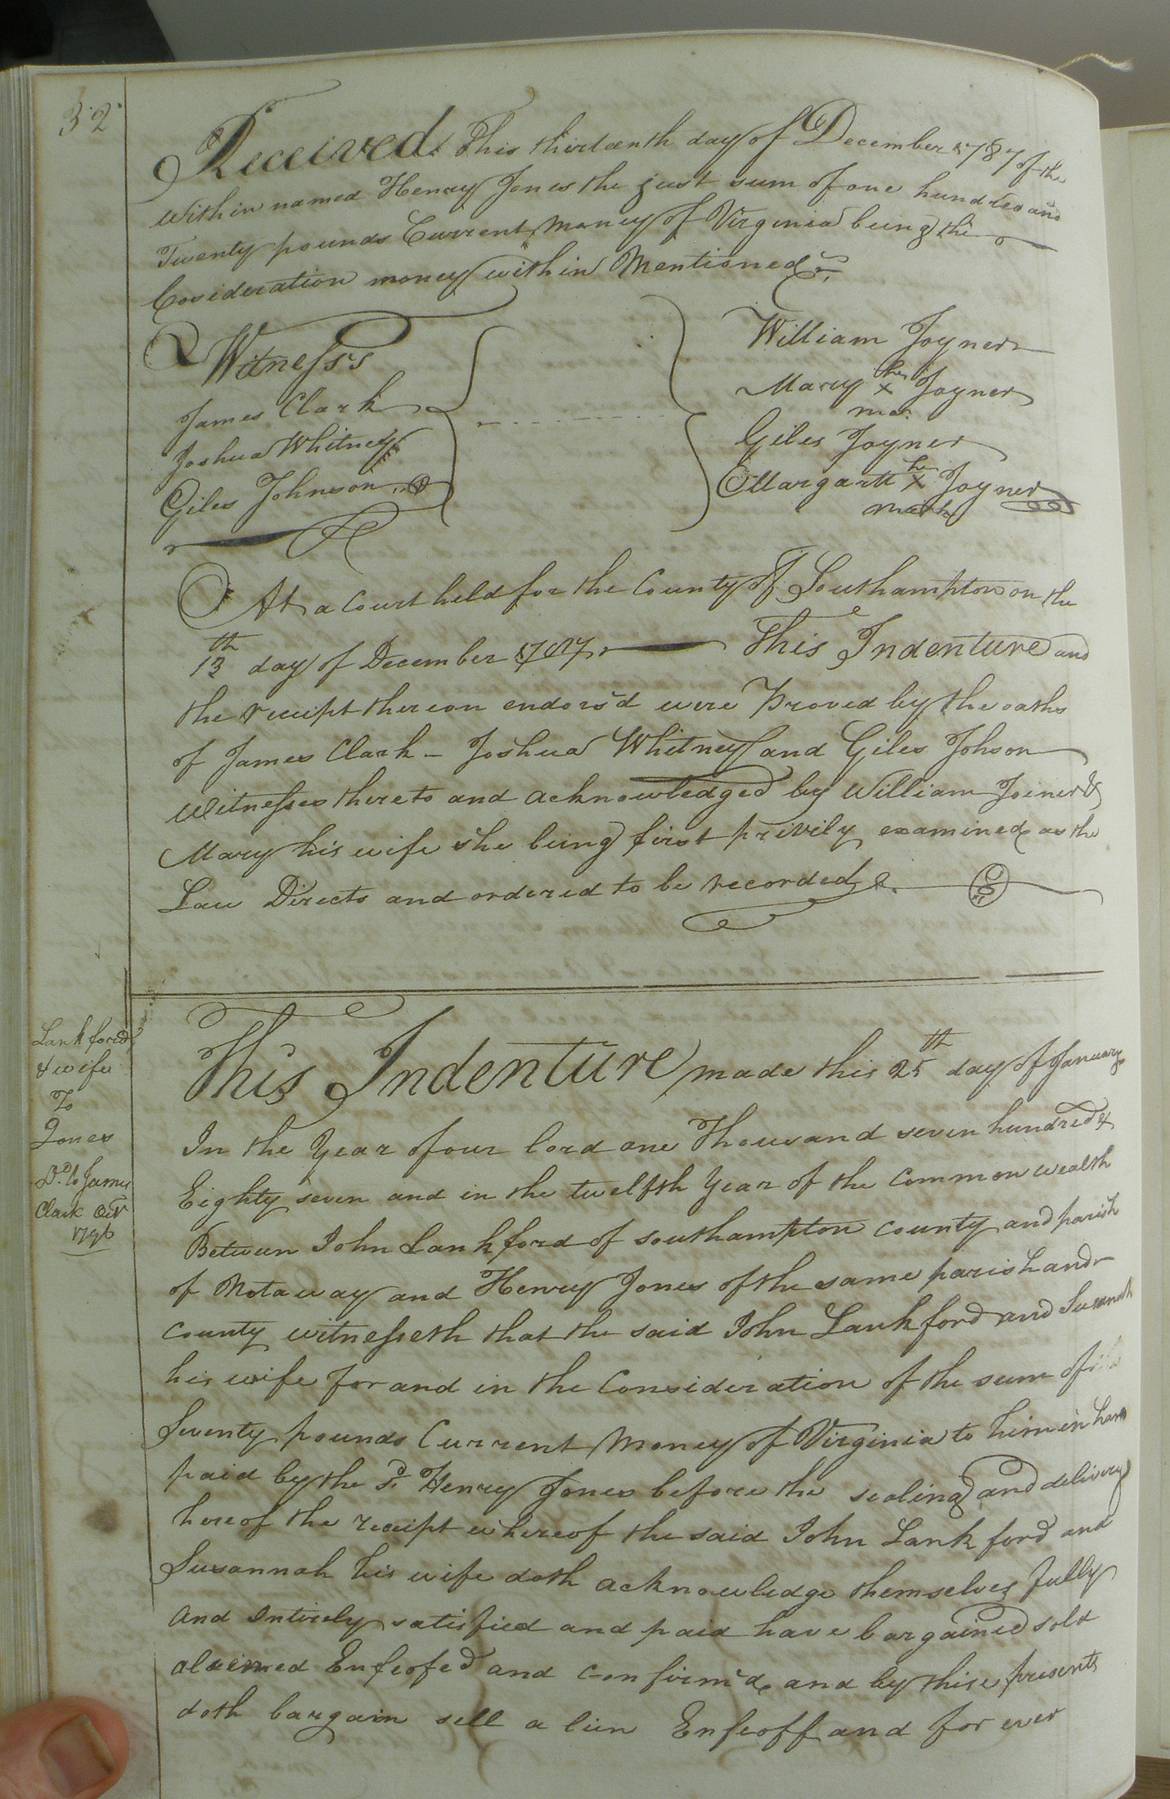 32
Received This thirteenth day of December 1787 of the
within named Henry Jones the just sum of one hundred and
Twenty pounds Current money of Virginia being the
Cosideration money within Mentioned
Witness's
James Clark
Joshua Whitney
Giles Johnson
William Joyner
Mary her x Joyner
mar
Giles Joyner
Margarett her x Joyner
mark
At a Court held for the County of Southampton on the
13th day of December 1787 This Indenture and
the receipt thereon endors'd were Proved by the oaths
of James Clark - Joshua Whitney and Giles Johson
Witnesses thereto and acknowledged by William Joiner &
Mary his wife she being first privily examined as the
Law Directs and ordered to be recorded
Lankford
& wife
To
Jones
Dd. to James
Clark Octr
1796
This Indenture made this 25th day of January
In the Year of our lord one Thousand seven hundred &
Eighty seven and in the twelfth Year of the Common wealth
Between John Lankford of southampton County and parish
of Notaway and Henry Jones of the same parish and
County witnesseth that the said John Lankford and Susannah
his wife for and in the Consideration of the sum of
Seventy pounds Current Money of Virginia to him in hand
paid by the sd. Henry Jones before the sealing and delivery
hereof the receipt whereof the said John Lankford and
Susannah his wife doth acknowledge themselves fully
And Intirely satisfied and paid have bargained sold
aleined Enfeofed and confirm'd and by these presents
doth bargain sell a lien Enfeoff and for ever